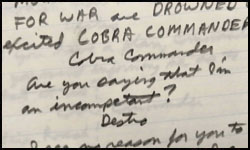 FOR WAR are DROWNED
excited COBRA COMMANDER
Cobra Commander
Are you saying that I'm
an incompetent?
Destro
no reason for you to